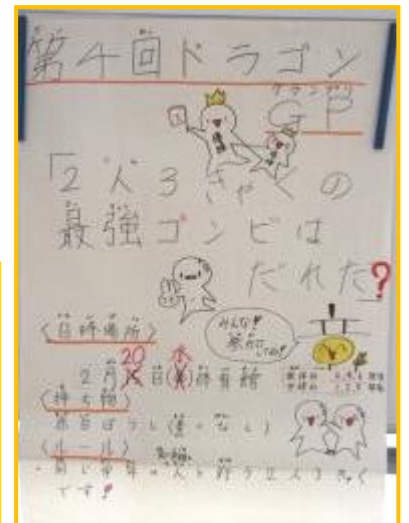 第4回ドラゴン
グランプリ
GP
「2人3きゃくの
最強コンビは
だれだ?
みんな!
参加してね!
〈日時場所〉
2月20日(水)体育館
〈持ち物〉
赤白ぼうし(なし)
〈ルール〉
・同じ学年の人と行う2人3きゃく
です!